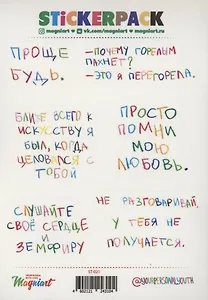 STICKERPACK
magniart vk.com/magniart magniart.ru
ПРОЩЕ
БУДЬ.
-ПОЧЕМУ ГОРЕЛЫМ
ПАХНЕТ?
-ЭТО Я ПЕРЕГОРЕЛА.
БЛИЖЕ ВСЕГО К
ИСКУССТВУ Я
БЫЛ, КОГДА
ЦЕЛОВАЛСЯ С
ТОБОЙ
ПРОСТО
ПОМНИ
МОЮ
ЛЮБОВЬ.
СЛУШАЙТЕ
СВОЁ СЕРДЦЕ
И
ЗЕМФИРУ
НЕ РАЗГОВАРИВАЙ,
У ТЕБЯ НЕ
ПОЛУЧАЕТСЯ.
Magniart
ST-021
@YOURPERSONALYOUTH